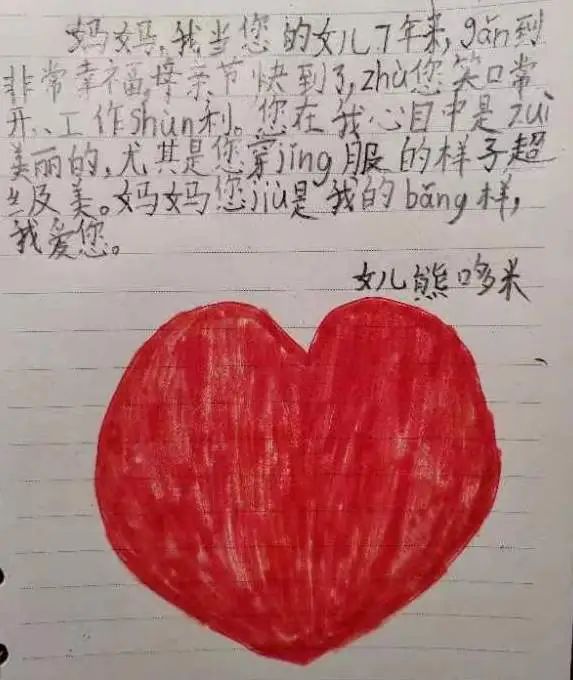 妈妈,我当您的女儿7年来,gǎn到
非常幸福,母亲节快到了,zhù您笑口常
开、工作shùn利。您在我心目中是zuì
美丽的,尤其是您穿jǐng服的样子超
级美。妈妈您jiù是我的bǎng样,
我爱您。
女儿熊哆米